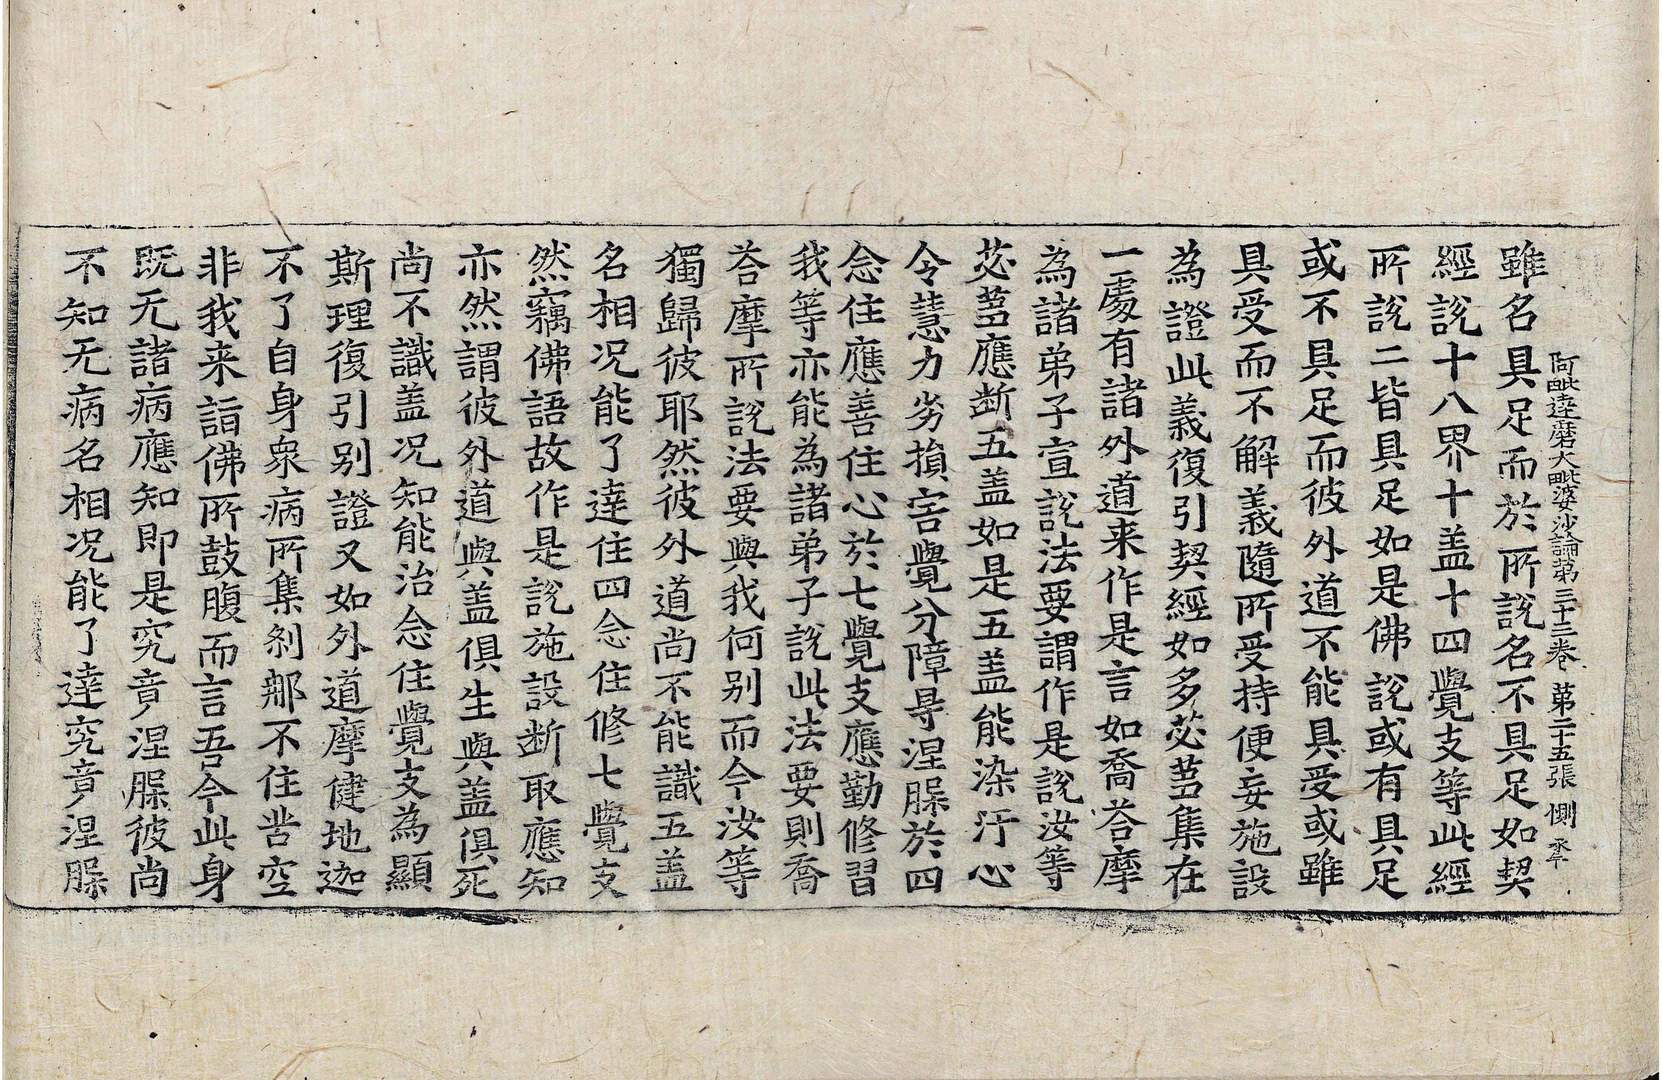 阿毗達磨大毗婆沙論第三十三卷 第二十五張 側
雖名具足而於所說名不具足如契
經說十八界十盖十四覺支等此經
所說二皆具足如是佛說或有具足
或不具足而彼外道不能具受或雖
具受而不解義隨所受持便妄施設
為證此義復引契經如多苾芻集在
一處有諸外道来作是言如喬荅摩
為諸弟子宣說法要謂作是說汝等
苾芻應断五盖如是五盖能染汙心
令慧力劣損害覺分障㝵涅槃於四
念住應善住心於七覺支應勤修習
我等亦能為諸弟子說此法要則喬
荅摩所說法要與我何别而今汝等
獨歸彼耶然彼外道尚不能識五盖
名相况能了達住四念住修七覺支
然竊佛語故作是說施設断取應知
亦然謂彼外道與盖俱生與盖俱死
尚不識盖况知能治念住覺支為顯
斯理復引别證又如外道摩健地迦
不了自身衆病所集刹那不住苦空
非我来詣佛所鼓腹而言吾今此身
既无諸病應知即是究竟涅槃彼尚
不知无病名相况能了達究竟涅槃